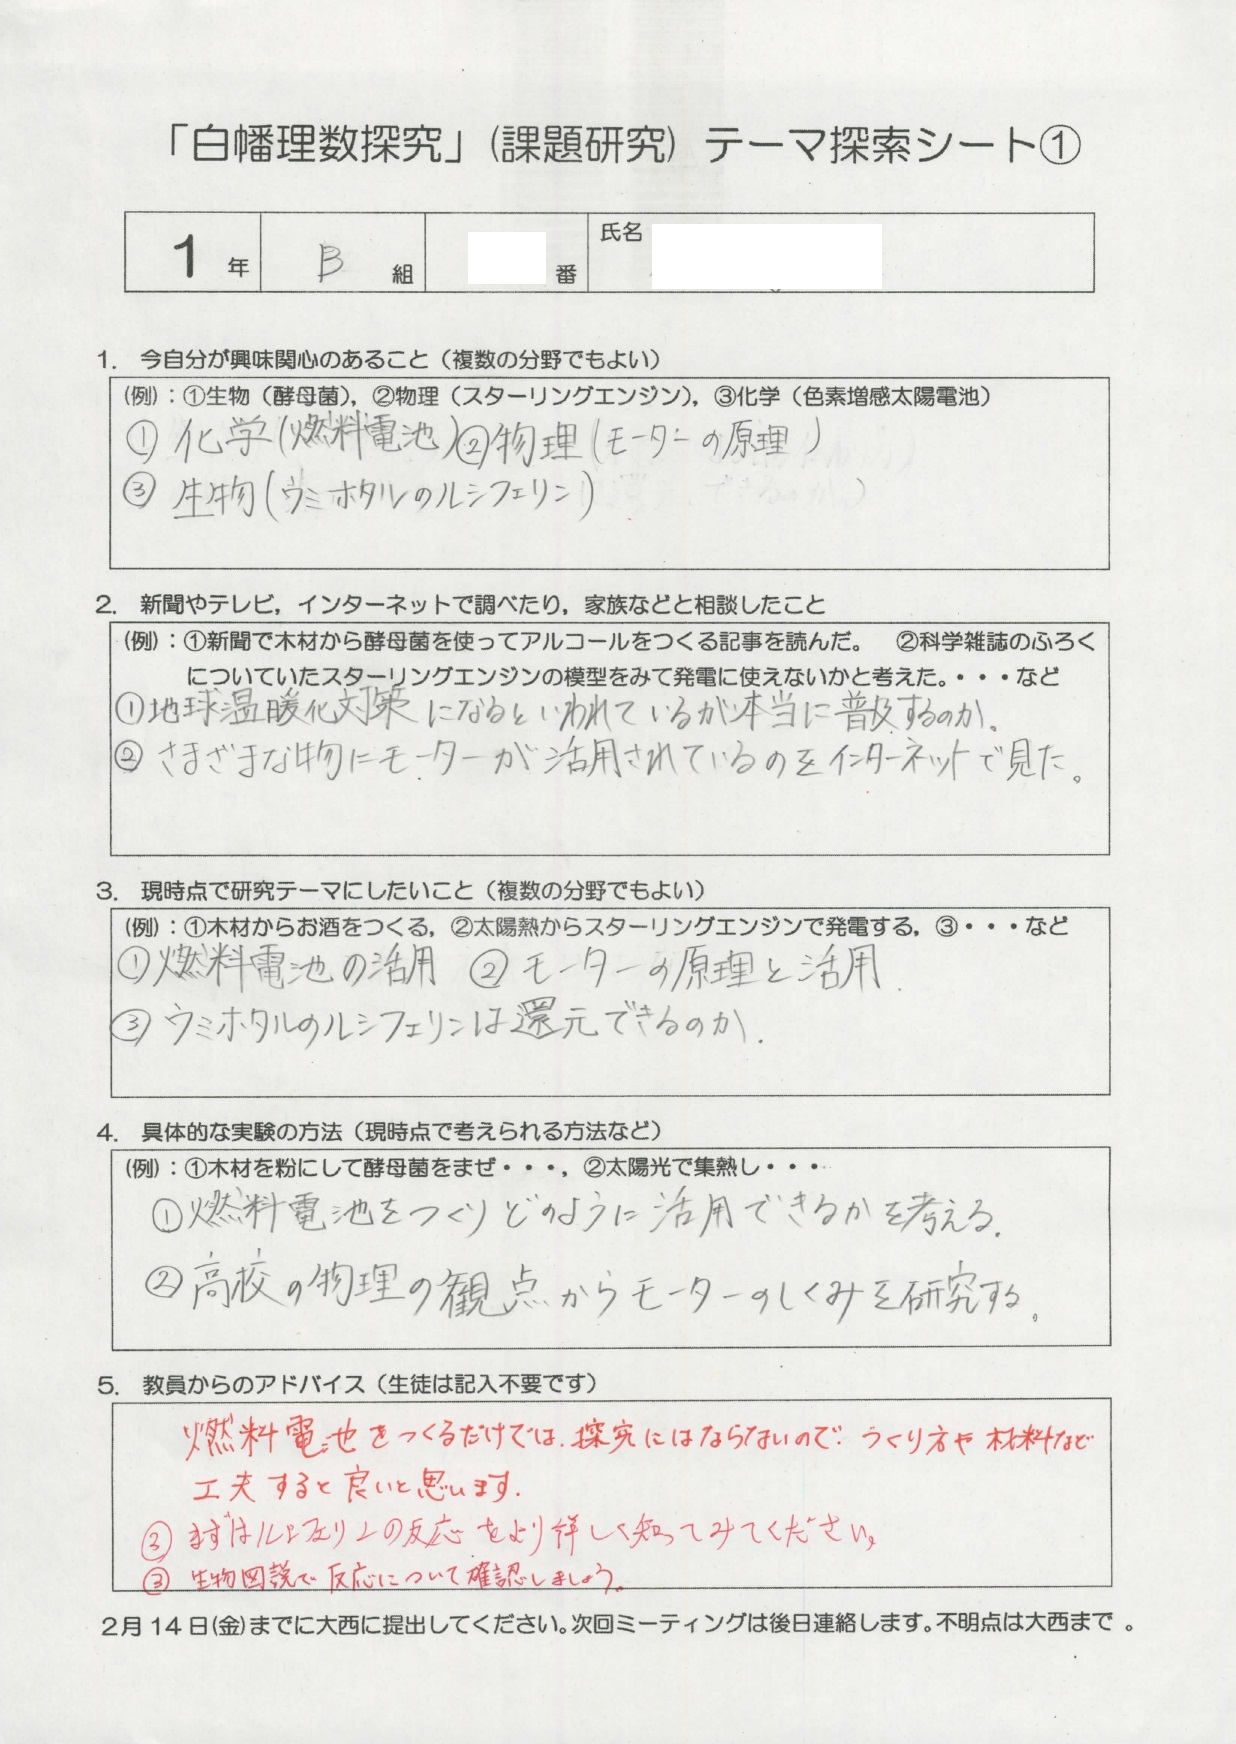 「白幡理数探究」(課題研究) テーマ探索シート①
1 年 B 組 番 氏名
1. 今自分が興味関心のあること（複数の分野でもよい）
(例)：①生物（酵母菌），②物理（スターリングエンジン），③化学（色素増感太陽電池）
① 化学(燃料電池)②物理(モーターの原理)
③ 生物(ウミホタルのルシフェリン)
2. 新聞やテレビ，インターネットで調べたり，家族などと相談したこと
(例)：①新聞で木材から酵母菌を使ってアルコールをつくる記事を読んだ。 ②科学雑誌のふろく
についていたスターリングエンジンの模型をみて発電に使えないかと考えた。・・・など
①地球温暖化対策になるといわれているが本当に普及するのか.
② さまざまな物にモーターが活用されているのをインターネットで見た。
3. 現時点で研究テーマにしたいこと（複数の分野でもよい）
(例)：①木材からお酒をつくる，②太陽熱からスターリングエンジンで発電する，③・・・など
①燃料電池の活用 ②モーターの原理と活用.
③ウミホタルのルシフェリンは還元できるのか.
4. 具体的な実験の方法（現時点で考えられる方法など）
(例)：①木材を粉にして酵母菌をまぜ・・・，②太陽光で集熱し・・・
①燃料電池をつくりどのように活用できるかを考える.
②高校の物理の観点からモーターのしくみを研究する。
5. 教員からのアドバイス（生徒は記入不要です）
燃料電池をつくるだけでは、探究にはならないので、つくり方や材料など
工夫すると良いと思います.
③ まずはルシフェリンの反応をより詳しく知ってみてください。
③ 生物図説で反応について確認しましょう。
2月14日(金)までに大西に提出してください。次回ミーティングは後日連絡します。不明点は大西まで。